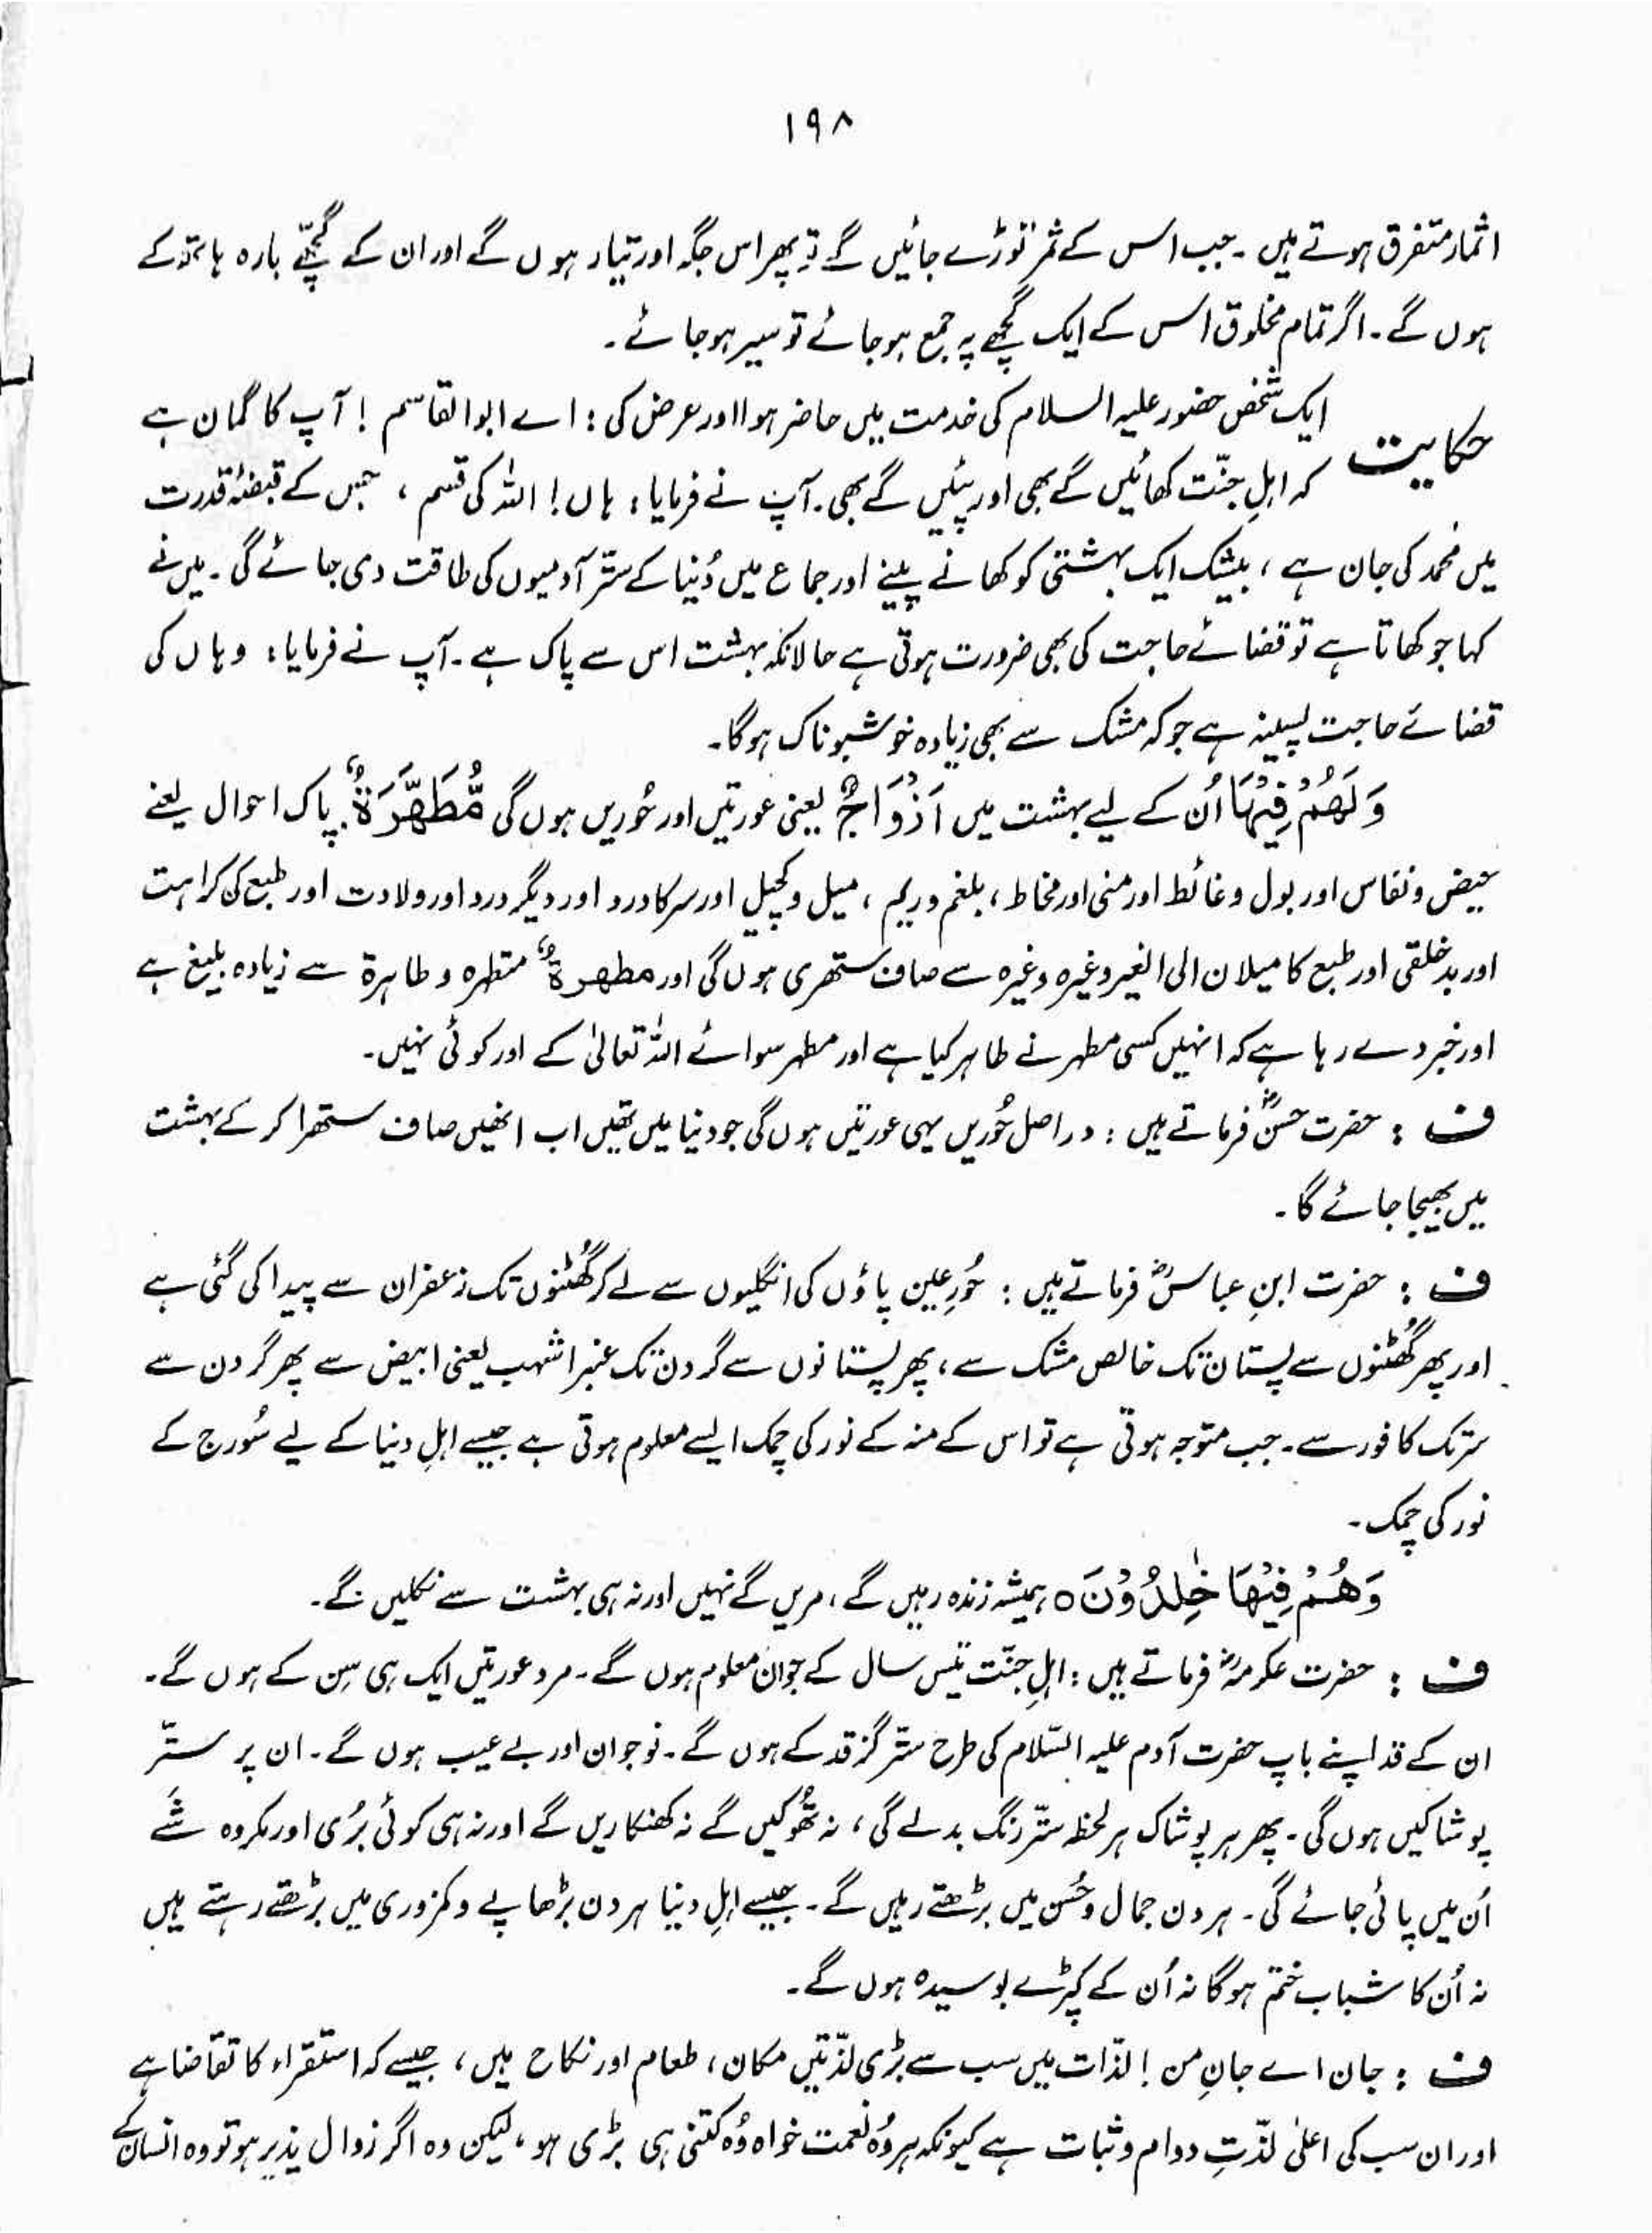 ۱۹۸
اثمار متفرق ہوتے ہیں ۔ جب اس کے ثمر توڑے جائیں گے تو پھر اس جگہ اور تیار ہوں گے اور ان کے گچھّے بارہ ہاتھ کے
ہوں گے ۔ اگر تمام مخلوق اس کے ایک گچھے پہ جمع ہوجائے تو سیر ہوجائے ۔
ایک شخص حضور علیہ السلام کی خدمت میں حاضر ہوا اور عرض کی : اے ابوالقاسم ! آپ کا گمان ہے
حکایت
کہ اہلِ جنّت کھائیں گے بھی اور پئیں گے بھی ۔ آپ نے فرمایا : ہاں ! اللہ کی قسم ، جس کے قبضۂ قدرت
میں محمد کی جان ہے ، بیشک ایک بہشتی کو کھانے پینے اور جماع میں دُنیا کے ستّر آدمیوں کی طاقت دی جائے گی ۔ میں نے
کہا جو کھاتا ہے تو قضائے حاجت کی بھی ضرورت ہوتی ہے حالانکہ بہشت اس سے پاک ہے ۔ آپ نے فرمایا : وہاں کی
قضائے حاجت پسینہ ہے جو کہ مشک سے بھی زیادہ خوشبوناک ہوگا ۔
وَلَهُمْ فِيْهَا اُن کے لیے بہشت میں اَزْوَاجٌ یعنی عورتیں اور حُوریں ہوں گی مُّطَهَّرَةٌ پاک احوال یعنے
حیض و نفاس اور بول و غائط اور منی اور مخاط ، بلغم و ریم ، میل و کچیل اور سر کا درد اور دیگر درد اور ولادت اور طبع کی کراہت
اور بدخلقی اور طبع کا میلان الی الغیر وغیرہ وغیرہ سے صاف ستھری ہوں گی اور مطهرةٌ متطہرہ و طاہرۃ سے زیادہ بلیغ ہے
اور خبر دے رہا ہے کہ انہیں کسی مطہر نے طاہر کیا ہے اور مطہر سوائے اللہ تعالیٰ کے اور کوئی نہیں ۔
ف : حضرت حسنؓ فرماتے ہیں : دراصل حُوریں یہی عورتیں ہوں گی جو دنیا میں تھیں اب انھیں صاف ستھرا کر کے بہشت
میں بھیجا جائے گا ۔
ف : حضرت ابنِ عباسؓ فرماتے ہیں : حُورِعین پاؤں کی انگلیوں سے لے کر گھُٹنوں تک زعفران سے پیدا کی گئی ہے
اور پھر گھُٹنوں سے پستان تک خالص مشک سے ، پھر پستانوں سے گردن تک عنبر اشہب یعنی ابیض سے پھر گردن سے
سر تک کافور سے ۔ جب متوجہ ہوتی ہے تو اس کے منہ کے نور کی چمک ایسے معلوم ہوتی ہے جیسے اہلِ دنیا کے لیے سُورج کے
نور کی چمک ۔
وَهُمْ فِيْهَا خٰلِدُوْنَ ہ ہمیشہ زندہ رہیں گے ، مریں گے نہیں اور نہ ہی بہشت سے نکلیں گے ۔
ف : حضرت عکرمہؓ فرماتے ہیں : اہلِ جنّت تیس سال کے جوان معلوم ہوں گے ۔ مرد عورتیں ایک ہی سِن کے ہوں گے ۔
ان کے قد اپنے باپ حضرت آدم علیہ السّلام کی طرح ستّر گز قد کے ہوں گے ۔ نوجوان اور بے عیب ہوں گے ۔ ان پر ستّر
پوشاکیں ہوں گی ۔ پھر ہر پوشاک ہر لحظہ ستّر رنگ بدلے گی ، نہ تھُوکیں گے نہ کھنکاریں گے اور نہ ہی کوئی بُری اور مکروہ شَے
اُن میں پائی جائے گی ۔ ہر دن جمال و حُسن میں بڑھتے رہیں گے ۔ جیسے اہلِ دنیا ہر دن بڑھاپے و کمزوری میں بڑھتے رہتے ہیں
نہ اُن کا شباب ختم ہوگا نہ اُن کے کپڑے بوسیدہ ہوں گے ۔
ف : جان اے جانِ من ! لذّات میں سب سے بڑی لذّتیں مکان ، طعام اور نکاح ہیں ، جیسے کہ استقراء کا تقاضا ہے
اور ان سب کی اعلیٰ لذّتِ دوام و ثبات ہے کیونکہ ہر وُہ نعمت خواہ وُہ کتنی ہی بڑی ہو ، لیکن وہ اگر زوال پذیر ہو تو وہ انسان کے